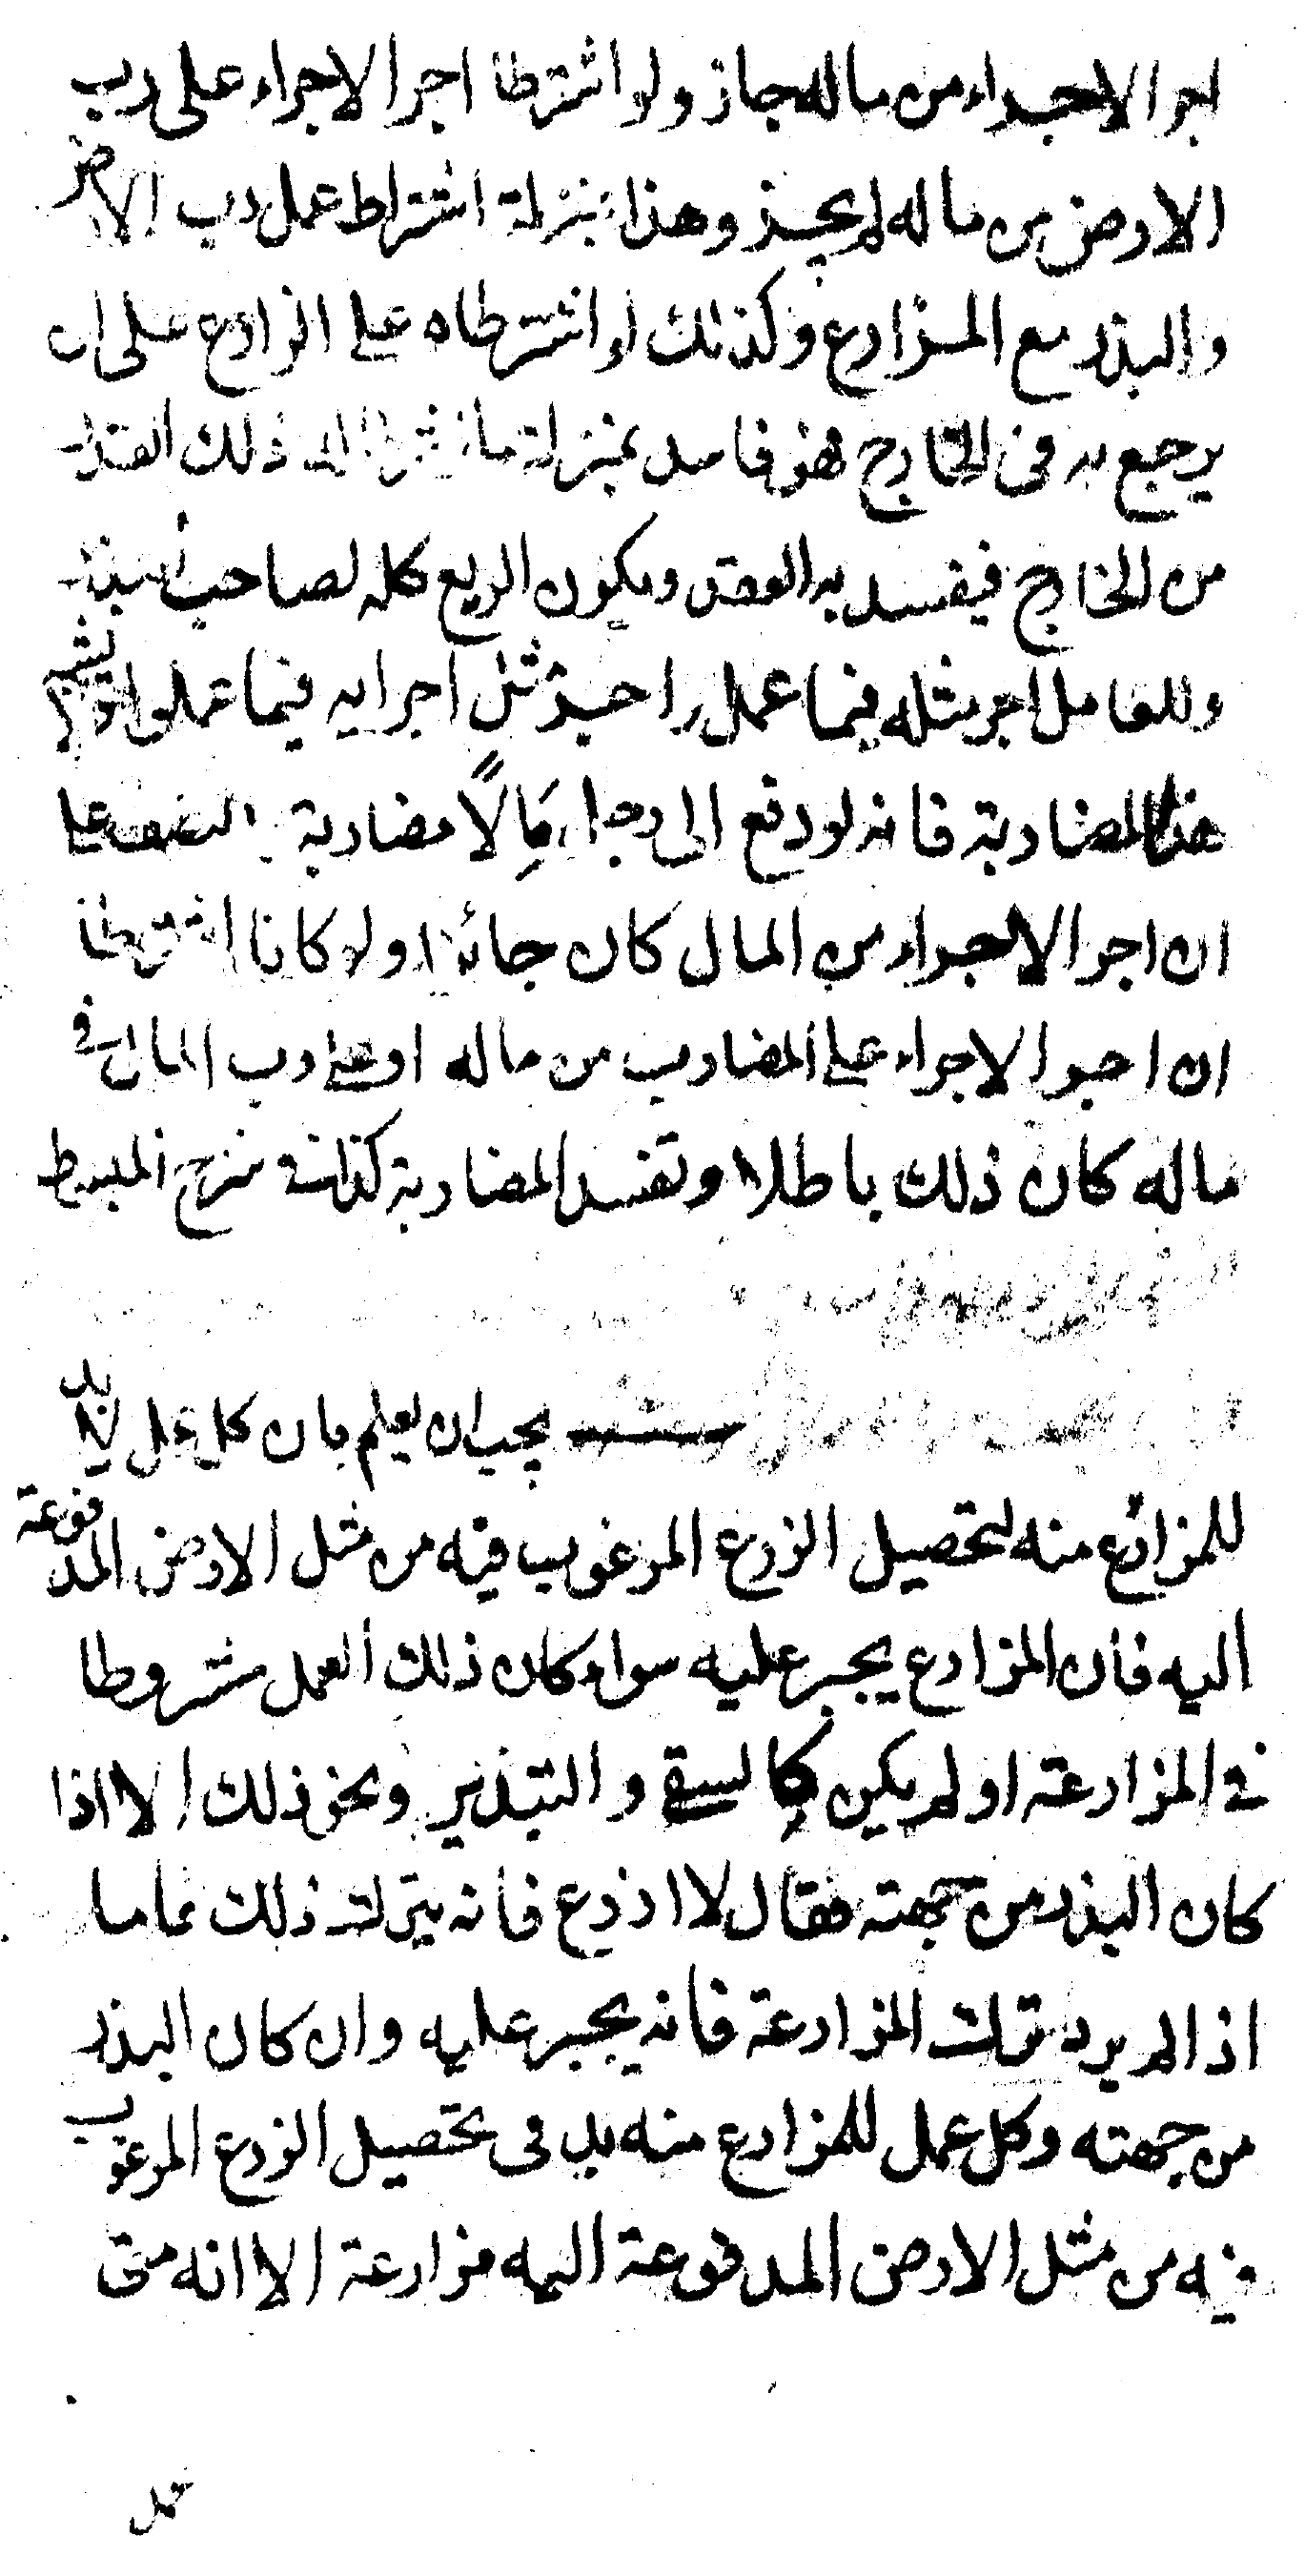 اجر الاجراء من ماله جاز ولو اشترطا اجر الاجراء على رب
الارض من ماله لم يجز وهذا بمنزلة اشتراط عمل رب الارض
والبذر مع المزارع وكذلك لو اشترطاه على الزارع على ان
يرجع به فى الخارج فهو فاسد بمنزلة ما شرطا له ذلك القدر
من الخارج فيفسد به العقد ويكون الريع كله لصاحب البذر
وللعامل اجر مثله فيما عمل واجر مثل اجرايه فيما عملوا ويشبه
هذا المضاربة فانه لو دفع الى رجل مالًا مضاربة بالنصف على
ان اجر الاجراء من المال كان جائزا ولو كانا اشترطا
ان اجر الاجراء على المضارب من ماله او على رب المال فى
ماله كان ذلك باطلا وتفسد المضاربة كذا فى شرح المبسوط
يجب ان يعلم بان كل عمل لا بد
للمزارع منه لتحصيل الزرع المرغوب فيه من مثل الارض المدفوعة
اليه فان المزارع يجبر عليه سواء كان ذلك العمل مشروطا
فى المزارعة او لم يكن كالسقى والتبذير ونحو ذلك الا اذا
كان البذر من جهته فقال لا ازرع فانه يترك ذلك فاما
اذا لم يرد ترك المزارعة فانه يجبر عليه وان كان البذر
من جهته وكل عمل للمزارع منه بد فى تحصيل الزرع المرغوب
فيه من مثل الارض المدفوعة اليه مزارعة الا انه متى